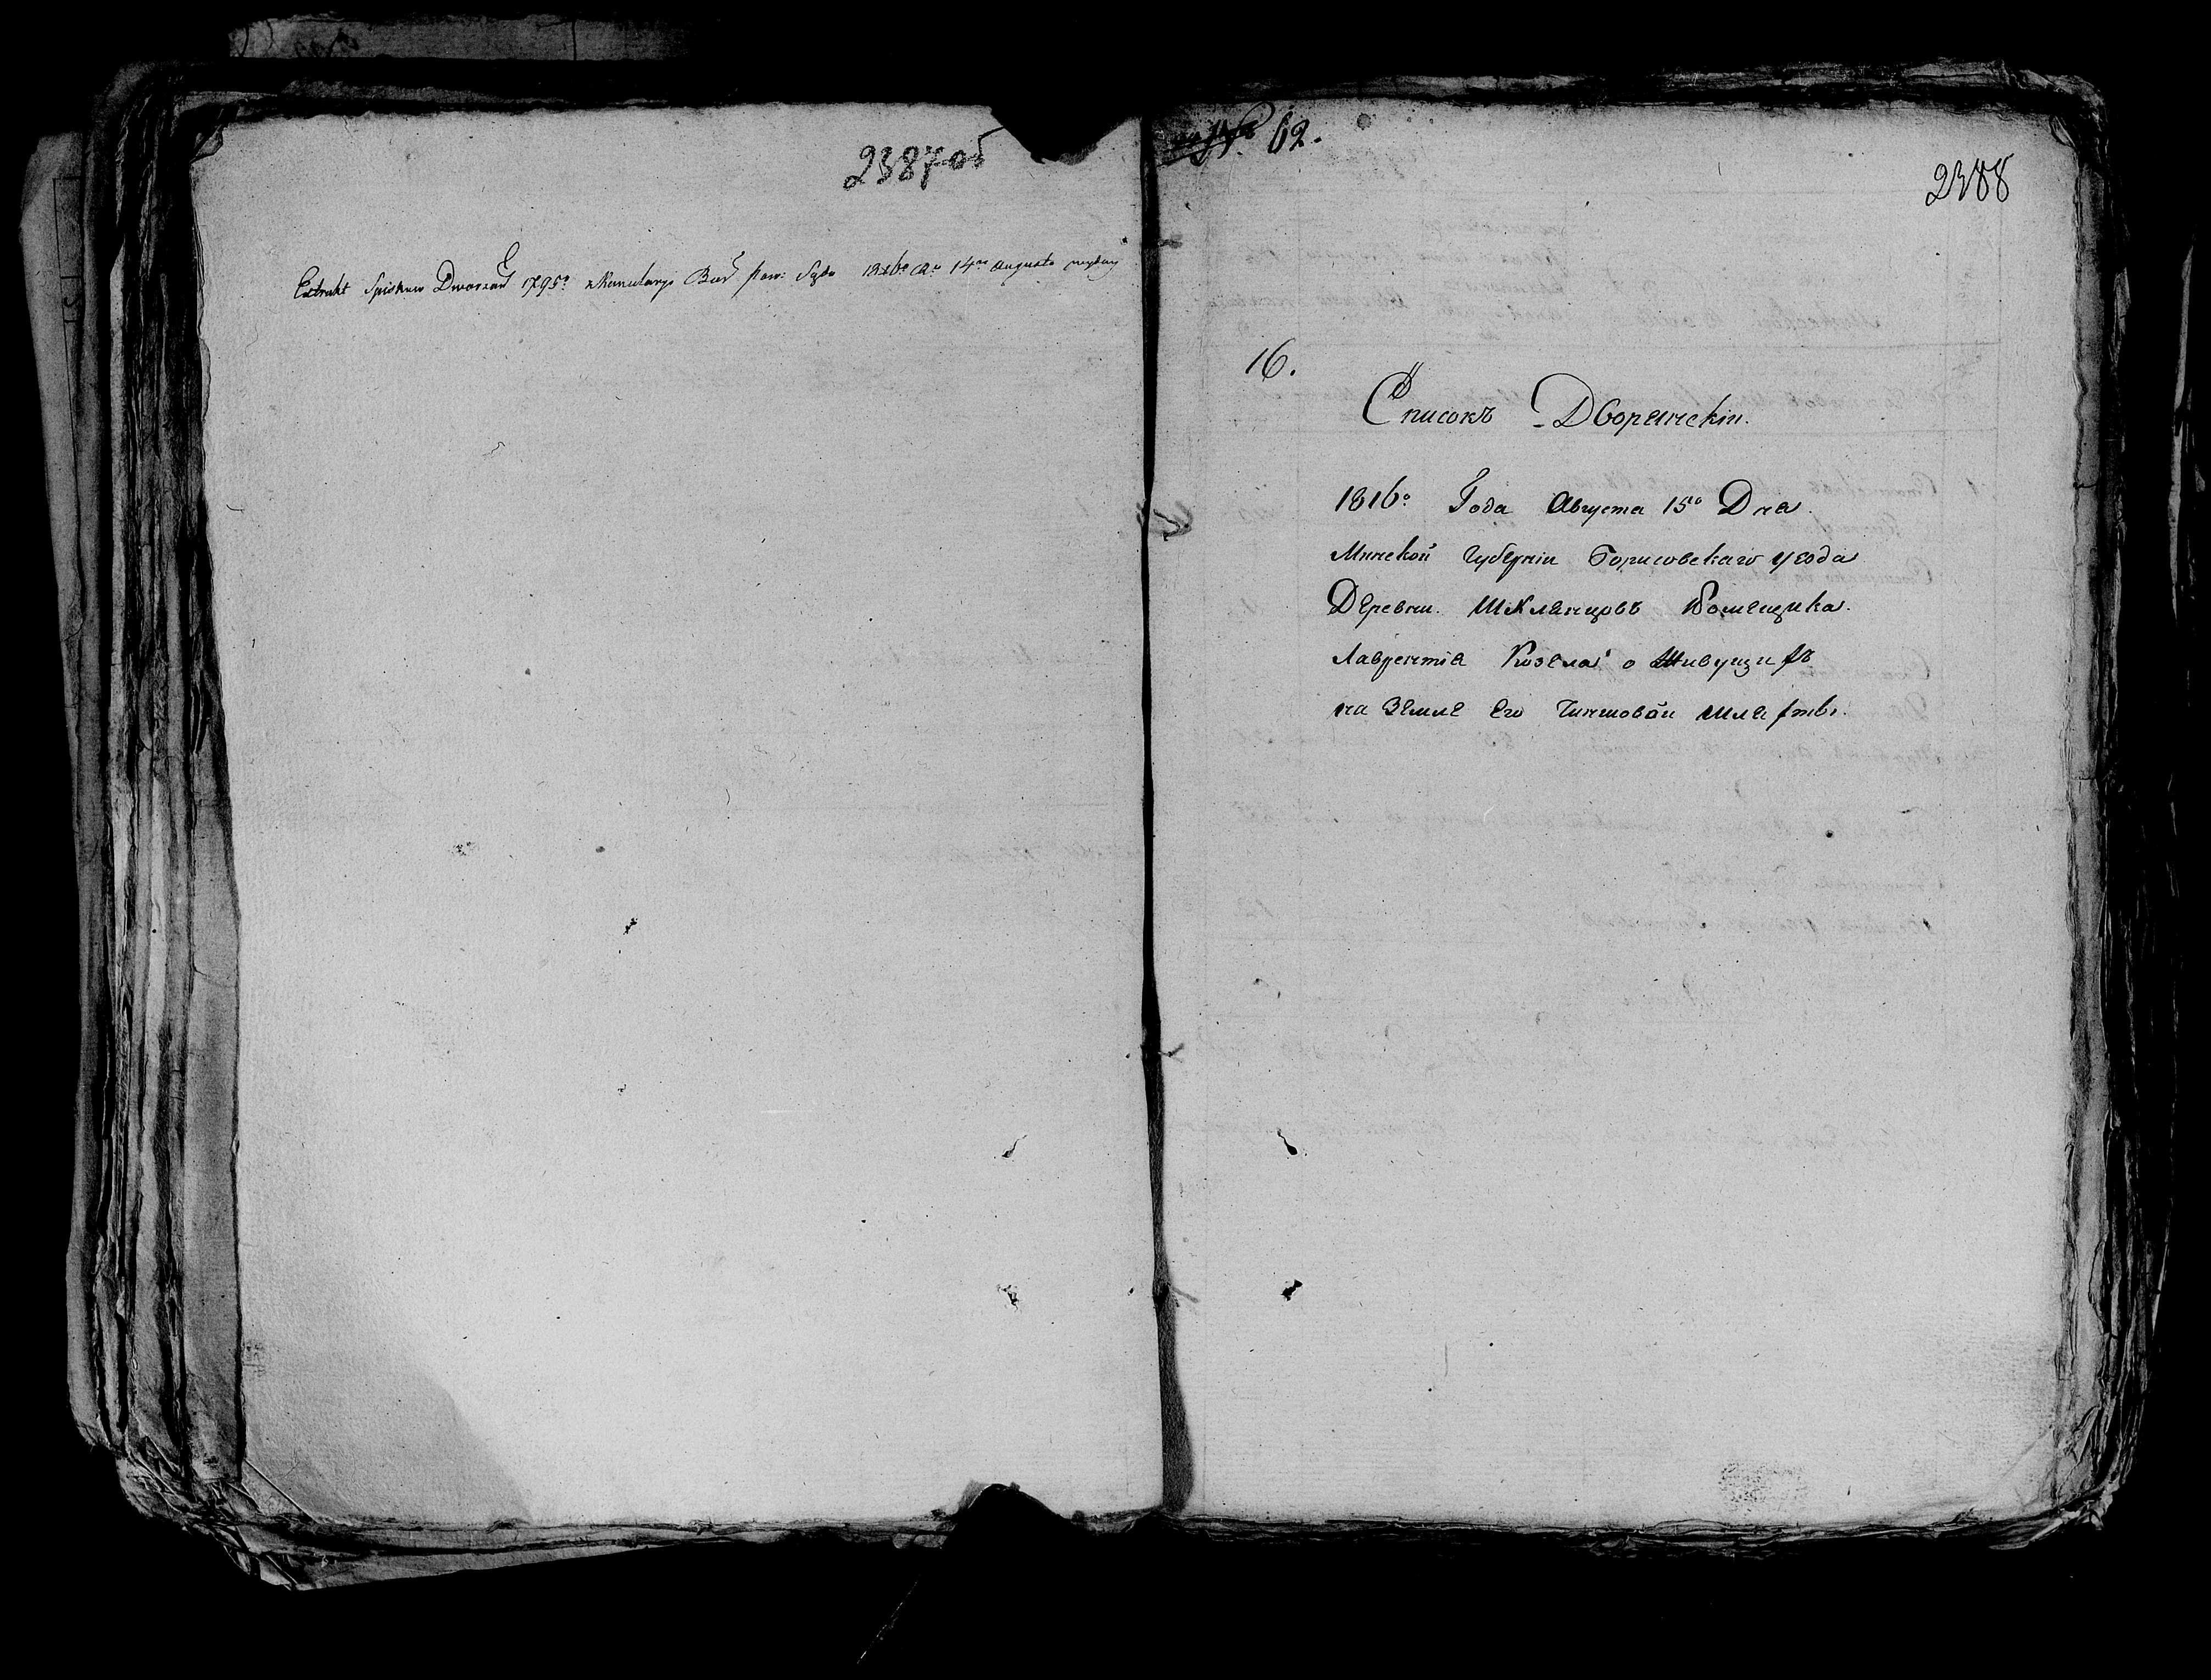 2387об
Extrakt Spiskow Dworzań 1795º z Kancelaryi Bor: Pow: Sądu 1816º 14 Augusta
№ 62.
2388
16.
Списокъ Дворянскіи.
1816º Года Августа 15º Дня.
Минской Губерніи Борисовскаго уезда
Деревни. Шклянцовъ Помещика.
Лаврентія Козела о Живущихъ
на Земле Его Чиншовой Шляхты.